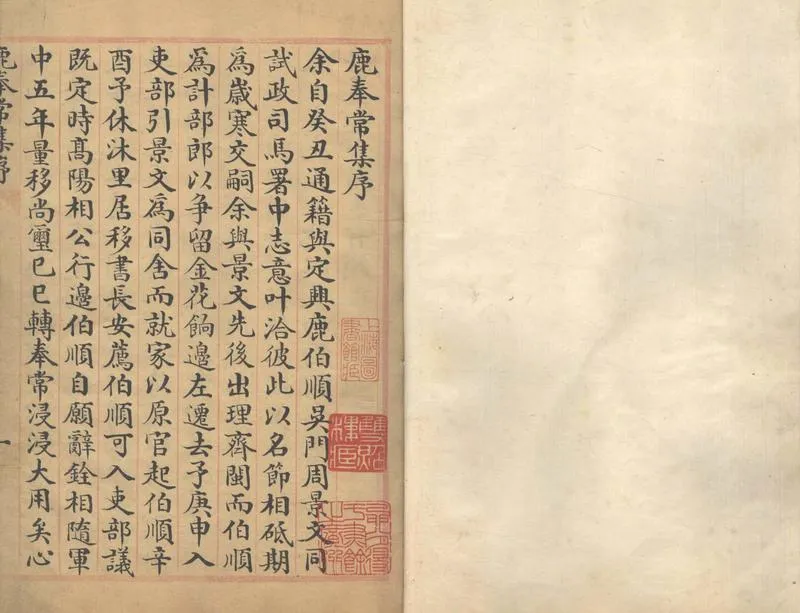 鹿奉常集序
余自癸丑通籍與定興鹿伯順吳門周景文同
試政司馬署中志意叶洽彼此以名節相砥期
爲歲寒交嗣余與景文先後出理齊閩而伯順
爲計部郎以争留金花餉邊左遷去予庚申入
吏部引景文爲同舍而就家以原官起伯順辛
酉予休沐里居移書長安薦伯順可入吏部議
既定時髙陽相公行邊伯順自願辭銓相隨軍
中五年量移尚璽巳巳轉奉常浸浸大用矣心
鹿奉常集序
一
上海圖書館藏